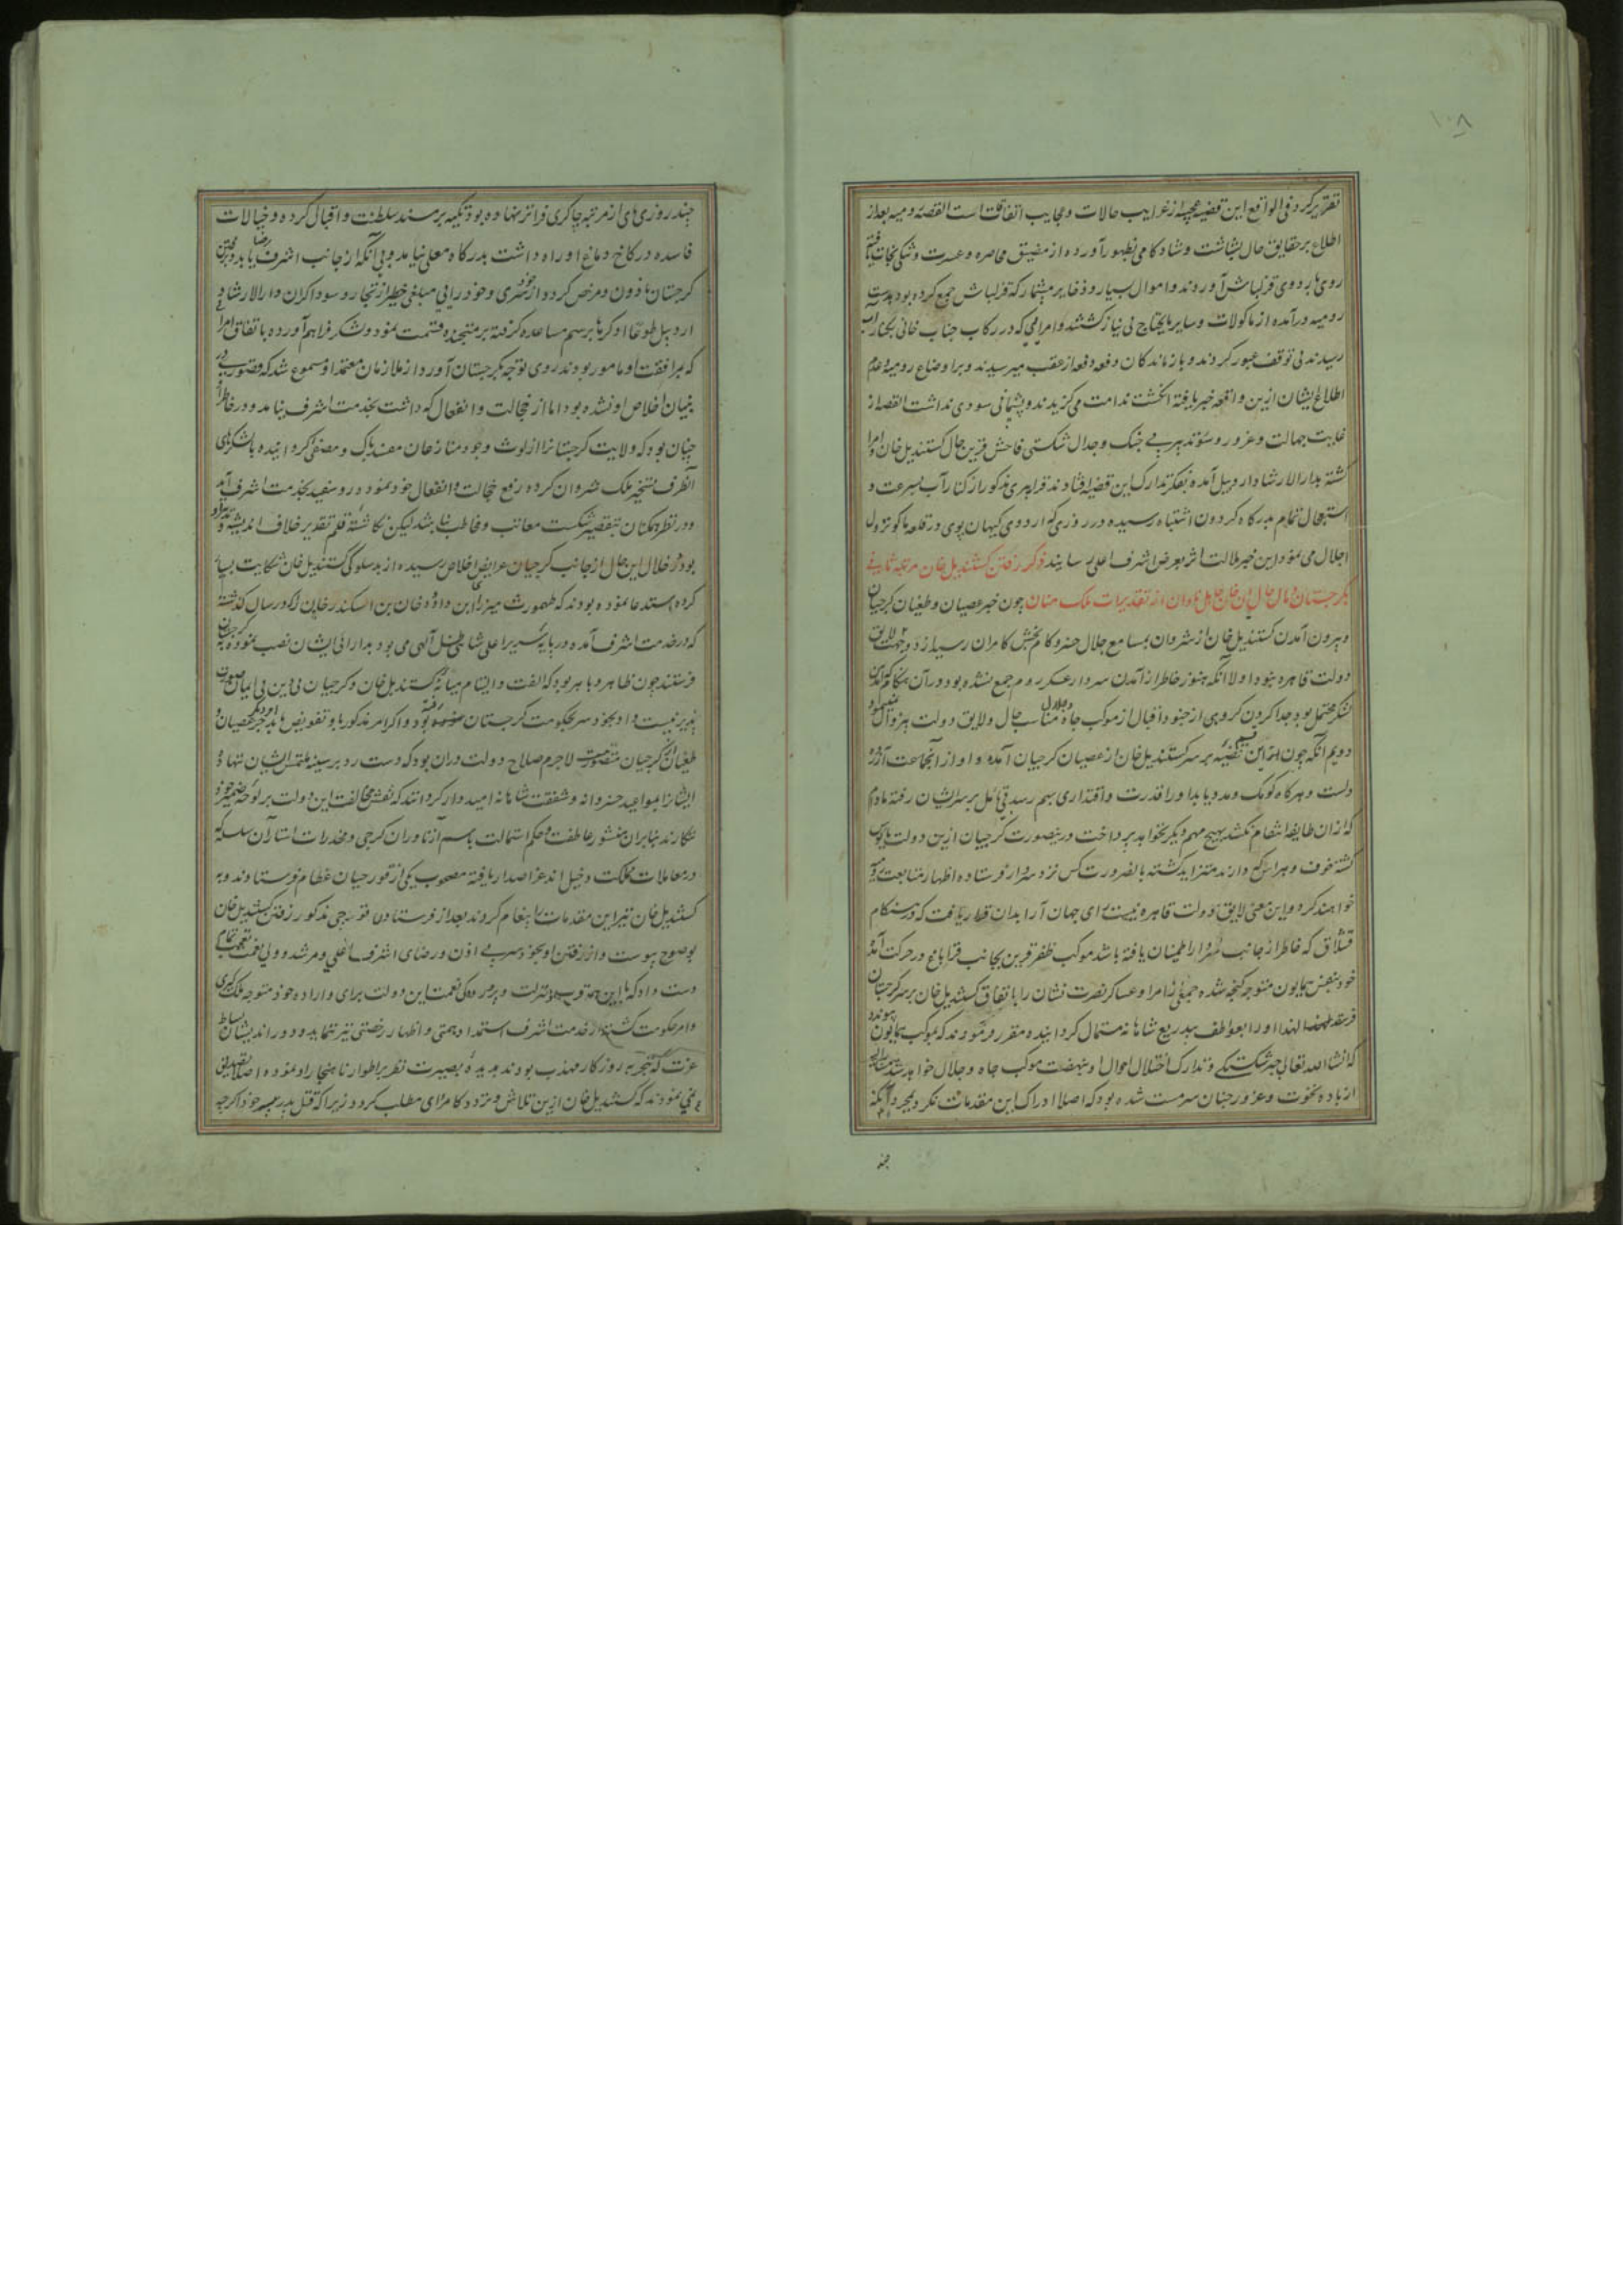 ۱۰۸
تقریر کرد فی الواقع این قضیه عجیبه از غرایب حالات و عجایب اتفاقات است القصه رومیه بعد از
اطلاع بر حقایق حال بشاشت و شادکامی بظهور آورده از مضیق محاصره و عسرت و تنکی نجات یافته
روی باردوی قزلباش آوردند و اموال بسیار و ذخایر بیشمار که قزلباش جمع کرده بود بدست
رومیه درآمده از ماکولات و سایر مایحتاج بی نیاز کشتند و امرایی که در رکاب جناب خانی بکنار آب
رسیدند بی توقف عبور کردند و بازماندکان دفعه دفعه از عقب میرسیدند و بر اوضاع رومیه و عدم
اطلاع ایشان ازین واقعه خبر یافته انکشت ندامت می کزیدند و پشیمانی سودی نداشت القصه از
غایت جهالت و غرور و سوء تدبیر بی جنک و جدال شکستی فاحش قرین حال کستندیل خان و امرا
کشته بدارالارشاد اردبیل آمده بفکر تدارک این قضیه افتادند قراپیری مذکور از کنار آب بسرعت و
استعجال تمام بدرکاه کردون اشتباه رسیده در روزی که اردوی کیهان پوی در قلعه ماکو نزول
اجلال می نمود این خبر ملالت اثر بعرض اشرف اعلی رسانیدند ذکر رفتن کستندیل خان مرتبه ثانی
بکرجستان و مال حال آن خان جاهل نادان از تقدیرات ملک منان چون خبر عصیان و طغیان کرجیان
و بیرون آمدن کستندیل خان از شروان بمسامع جلال خسرو کام بخش کامران رسید از دو جهت لایق
دولت قاهره نبود اولا آنکه هنوز خاطر از آمدن سردار عسکر روم جمع نشده بود و در آن هنکام که
لشکر محتمل بود جدا کردن کروهی از جنود اقبال از موکب جاه و جلال مناسب حال و لایق دولت بیزوال
دویم آنکه چون این قضیه بر سر کستندیل خان از عصیان کرجیان آمده و او از آن جماعت آزرده
دلست و هرکاه کومک و مدد یابد و او را قدرت و اقتداری بهم رسد بی تامل بر سر ایشان رفته مادام
که از آن طایفه انتقام نکشد بهیچ مهم دیکر نخواهد پرداخت درینصورت کرجیان ازین دولت مایوس
کشته خوف و هراس که دارند متزاید کشته بالضرورت کس نزد سردار فرستاده اظهار متابعت رومیه
خواهند کرد و این معنی لایق دولت قاهره نیست رای جهان آرا بدان قرار یافت که در هنکام
قشلاق که خاطر از جانب سردار اطمینان یافته باشد موکب ظفر قرین بجانب قراباغ در حرکت آمده
خود بنفس همایون متوجه کنجه شده جمعی از امرا و عساکر نصرت نشان را باتفاق کستندیل خان بر سر کرجستان
فرستد لهذا او را بعواطف بیدریغ شاهانه مستمال کردانیده مقرر فرمودند که بموکب همایون پیوندد
که انشاء الله تعالی جبر شکستکی و تدارک اختلال احوال او بنهضت موکب جاه و جلال خواهد شد
از باده نخوت و غرور چنان سرمست شده بود که اصلا ادراک این مقدمات نکرد بمجرد آنکه
چند
چند روزی پای از مرتبه چاکری فراتر نهاده بود تکیه بر مسند سلطنت و اقبال کرده و خیالات
فاسده در کاخ دماغ او راه داشت بدرکاه معلی نیامد و بی آنکه از جانب اشرف رضا یابد و برفتن
کرجستان ماذون و مرخص کردد از خودسری و خودرایی مبلغی خطیر از تجار و سوداکران دارالارشاد
اردبیل طوعا او کرها برسم مساعده کرفته بر متجنده قسمت نمود و لشکر فراهم آورده باتفاق امرا
که بمرافقت او مامور بودند روی توجه بکرجستان آورد از ملازمان معتمد او مسموع شد که قصوری در
بنیان اخلاص او نشده بود اما از خجالت و انفعال که داشت بخدمت اشرف نیامد و در خاطر
چنان بود که ولایت کرجستانرا از لوث وجود منازعان مفسد پاک و مصفی کردانیده با لشکرهای
آنطرف تسخیر ملک شروان کرده رفع خجالت و انفعال خود نموده روسفید بخدمت اشرف آید
و در نظر همکنان بتقصیر شکست معاتب و مخاطب نباشد لیکن نکاشته قلم تقدیر خلاف اندیشه و
بود در خلال این حال از جانب کرجیان عرایض اخلاص رسیده از بدسلوکی کستندیل خان شکایت بسیار
کرده استدعا نموده بودند که طهمورث میرزای ابن داود خان بن الکسندر خان را که در سال کذشته
که در خدمت اشرف آمده در پایه سریر اعلی شاهی ظل آلهی می بود بدارائی ایشان نصب نموده بکرجستان
فرستند چون ظاهر و باهر بود که الفت و التیام میانه کستندیل خان و کرجیان بی دین بی ایمان صورت
پذیر نیست و او بخودسر بحکومت کرجستان رفته بود و اکر امر مذکور باو تفویض یابد جز عصیان و
طغیان از کرجیان متصور نیست لاجرم صلاح دولت در آن بود که دست رد بر سینه ملتمس ایشان ننهاده
ایشانرا بمواعید خسروانه و شفقت شاهانه امیدوار کردانند که نقش مخالفت این دولت بر لوحه ضمیر خود
ننکارند بنابران منشور عاطفت و حکم استمالت باسم ازناوران کرجی و مخدرات استار آن سلسله که
در معاملات مملکت دخیل اند عز اصدار یافته مصحوب یکی از قورچیان عظام فرستادند و به
کستندیل خان نیز این مقدمات را پیغام کردند بعد از فرستادن قورچی مذکور رفتن کستندیل خان
بوضوح پیوست و از رفتن او بخودسر بی اذن و رضای اشرف اعلی و مرشد و ولی نعمت تعجب تمام
دست داد که با این قرب منزلت و پرورده کی نعمت این دولت برای و اراده خود متوجه ملک کیری
و امر حکومت کشته از خدمت اشرف استمداد همتی و اظهار رخصتی نیز ننماید و دوراندیشان بساط
عزت که بتجربه روزکار مهذب بودند بدیده بصیرت نظر بر اطوار ناهنجار او نموده اصلا تصدیق
معنی نمودند که کستندیل خان ازین تلاش و تردد کامرای مطلب کردد زیرا که قتل پدر پیر خود اکرچه